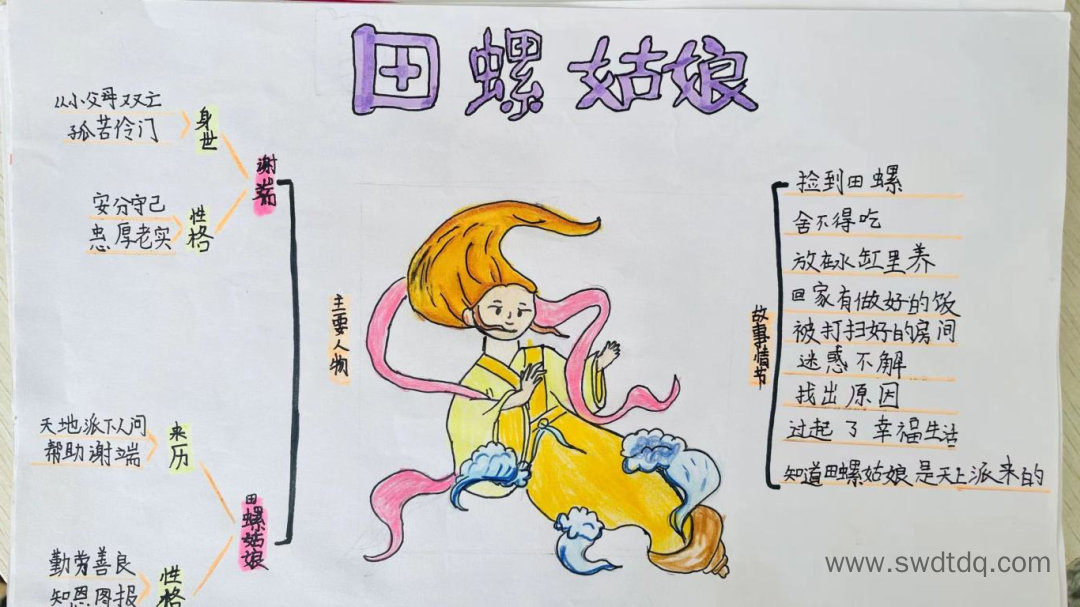 田螺姑娘
从小父母双亡
孤苦伶门
身世
谢端
安分守己
忠厚老实
性格
主要人物
天地派下人间
帮助谢端
来历
田螺姑娘
勤劳善良
知恩图报
性格
故事情节
捡到田螺
舍不得吃
放在水缸里养
回家有做好的饭
被打扫好的房间
迷惑不解
找出原因
过起了幸福生活
知道田螺姑娘是天上派来的
www.swdtdq.com